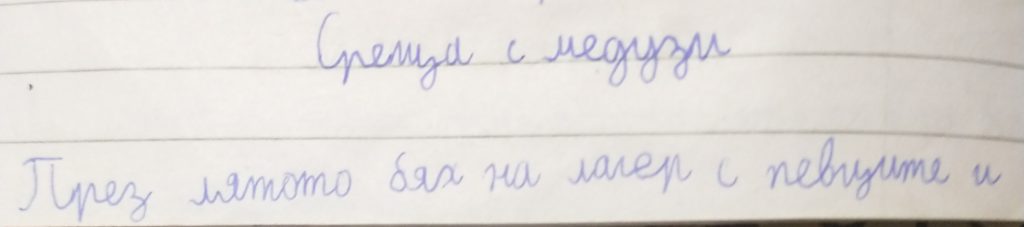 Среща с медузи
През лятото бях на лагер с певците и